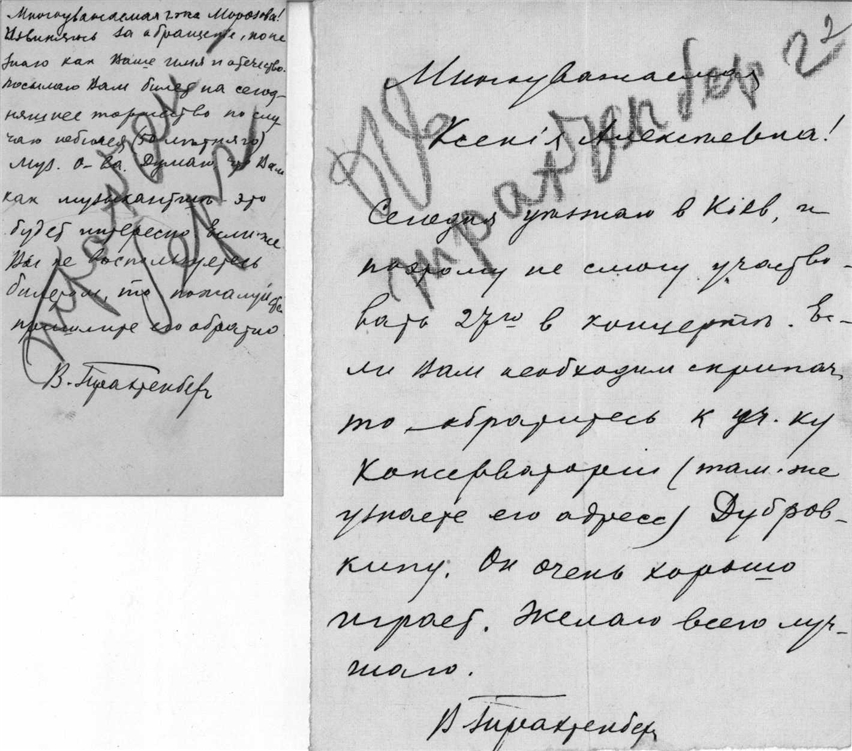 Многоуважаемая г-жа Морозова!
Извиняюсь за обращение, но не
знаю как Ваше имя и отечество.
Посылаю Вам билет на сегод-
няшнее торжество по слу
чаю юбилея
Муз. О-ва. Думаю, что Вам
как музыкантше это
будет интересно. Если-же
Вы не воспользуетесь
билетом, то пожалуйста
пришлите его обратно.
В. Трахтенберг
Многоуважаемая
Ксенія Алексеевна!
Сегодня уезжаю в Кіев, и
поэтому не смогу участво-
вать 27го в концерте. Ес-
ли Вам необходим скрипач,
то обратитесь к уч-ку
Консерваторіи (там-же
узнаете его адресс) Дубров-
кину. Он очень хорошо
играет. Желаю всего луч-
шаго.
В Трахтенберг
Трахтенберг 22